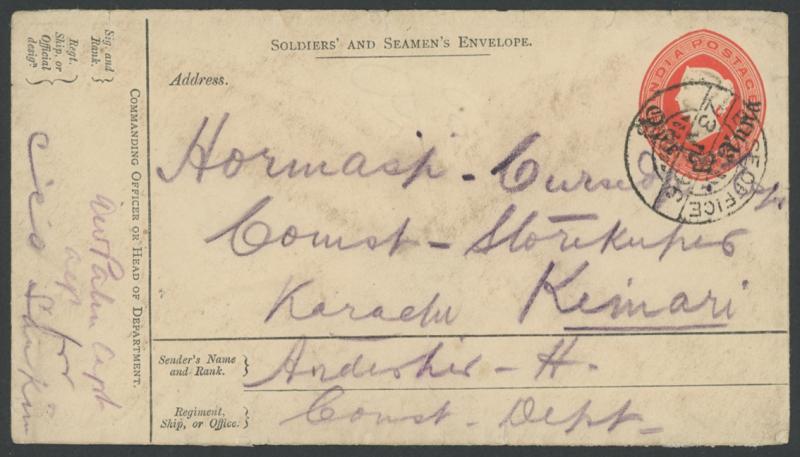 SOLDIERS' AND SEAMEN'S ENVELOPE.
Address.
INDIA POSTAGE
OFFICE
Hormasji - Curse
Comst - Storekeeper
Karachi Kemari
Sender's Name and Rank.
Ardeshir - H.
Regiment, Ship, or Office.
Comst - Dept -
Sig. and Rank.
Regt. Ship, or Official desig<sup>n</sup>.
COMMANDING OFFICER OR HEAD OF DEPARTMENT.
Capt
for